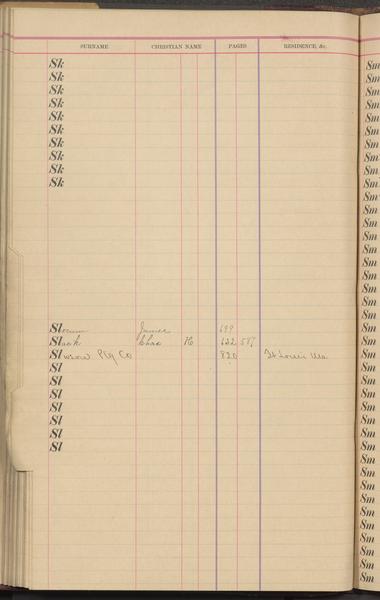 SURNAME CHRISTIAN NAME PAGES RESIDENCE, &c.
Sk
Sk
Sk
Sk
Sk
Sk
Sk
Sk
Sk
Sk
Slocum James 699
Slack Chas H 622 587
Sl Ptg Co 820 St Louis Mo
Sl
Sl
Sl
Sl
Sl
Sl
Sl
Sm
Sm
Sm
Sm
Sm
Sm
Sm
Sm
Sm
Sm
Sm
Sm
Sm
Sm
Sm
Sm
Sm
Sm
Sm
Sm
Sm
Sm
Sm
Sm
Sm
Sm
Sm
Sm
Sm
Sm
Sm
Sm
Sm
Sm
Sm
Sm
Sm
Sm
Sm
Sm